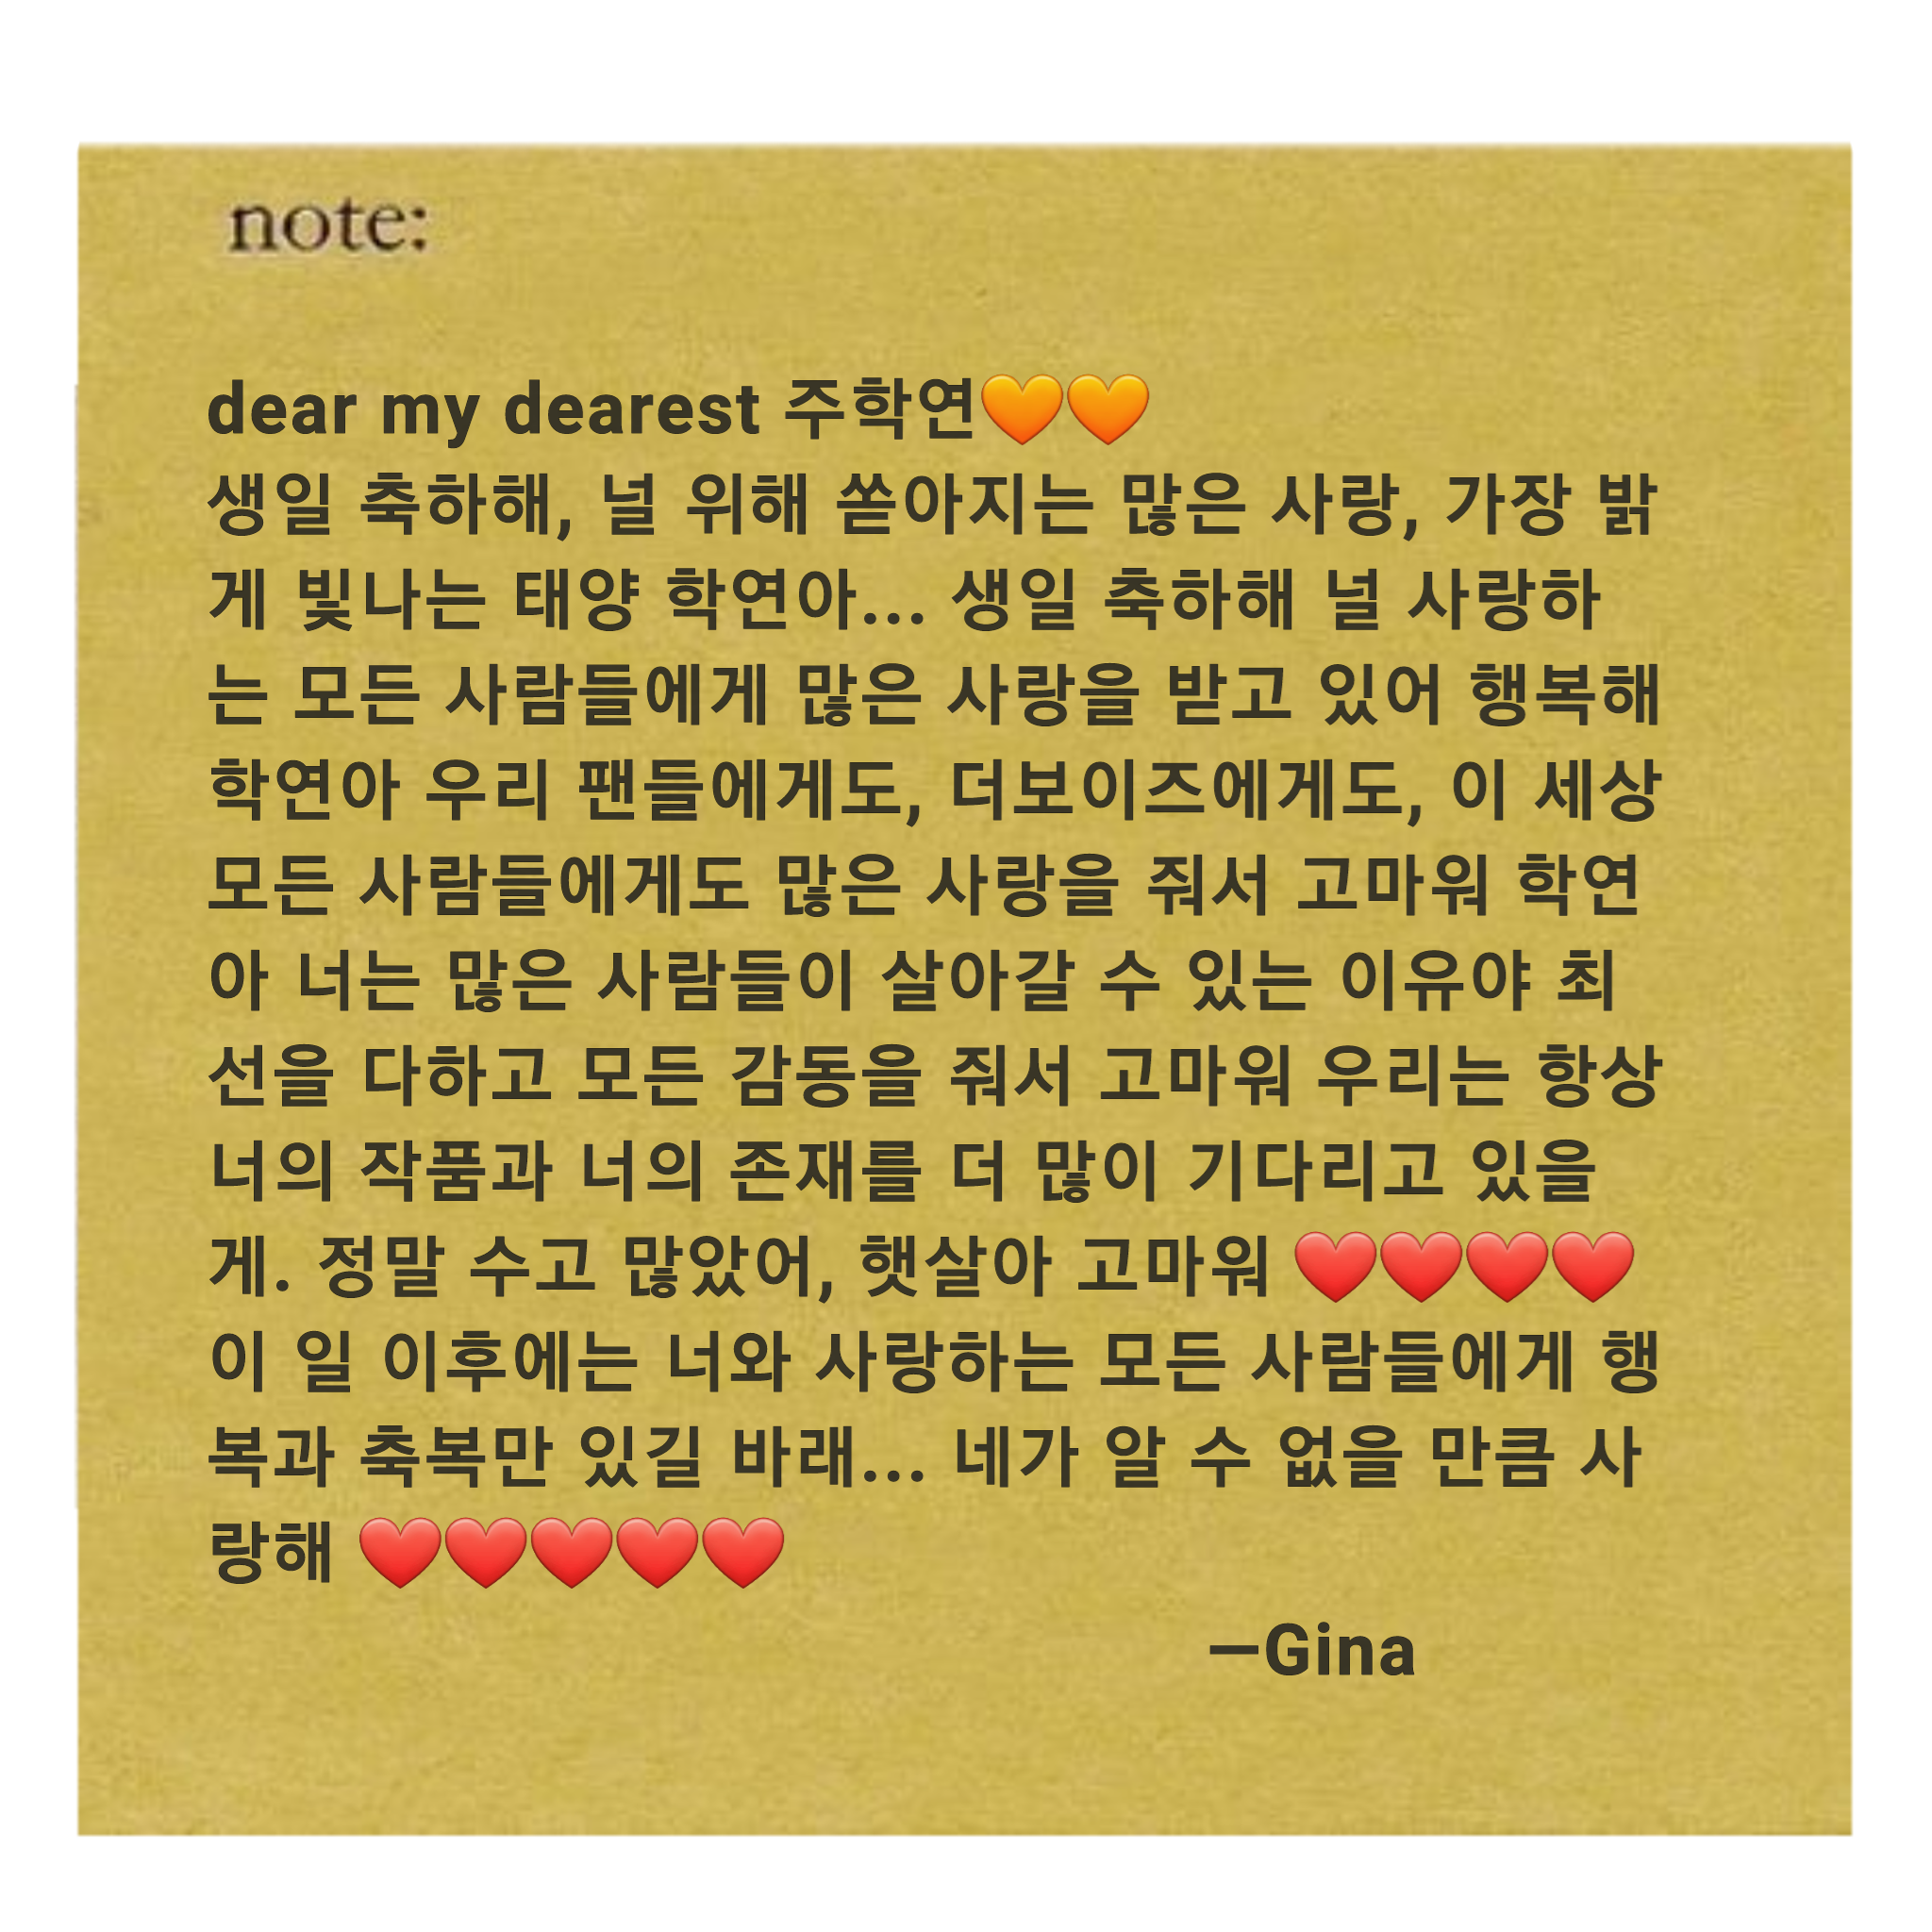 note:
dear my dearest 주학연🧡🧡
생일 축하해, 널 위해 쏟아지는 많은 사랑, 가장 밝
게 빛나는 태양 학연아... 생일 축하해 널 사랑하
는 모든 사람들에게 많은 사랑을 받고 있어 행복해
학연아 우리 팬들에게도, 더보이즈에게도, 이 세상
모든 사람들에게도 많은 사랑을 줘서 고마워 학연
아 너는 많은 사람들이 살아갈 수 있는 이유야 최
선을 다하고 모든 감동을 줘서 고마워 우리는 항상
너의 작품과 너의 존재를 더 많이 기다리고 있을
게. 정말 수고 많았어, 햇살아 고마워 ❤️❤️❤️❤️
이 일 이후에는 너와 사랑하는 모든 사람들에게 행
복과 축복만 있길 바래... 네가 알 수 없을 만큼 사
랑해 ❤️❤️❤️❤️❤️
—Gina